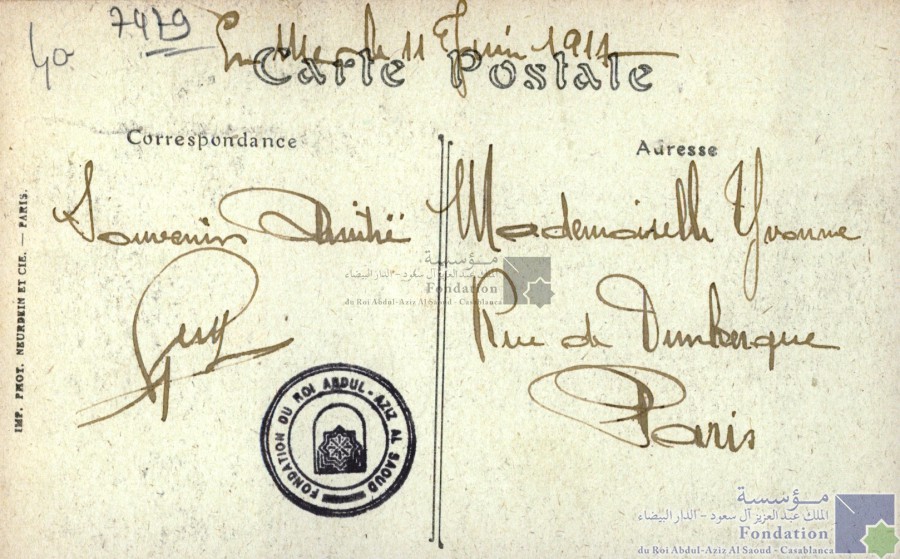 40
7479
En Mer le 11 Juin 1911
Carte Postale
Correspondance
Adresse
Souvenir Amitié
Mademoiselle Yvonne
Rue de Dunkerque
Paris
IMP. PHOT. NEURDEIN ET CIE. — PARIS.
FONDATION DU ROI ABDUL-AZIZ AL SAOUD
مؤسسة
الملك عبد العزيز آل سعود - الدار البيضاء
Fondation
du Roi Abdul-Aziz Al Saoud - Casablanca
مؤسسة
الملك عبد العزيز آل سعود - الدار البيضاء
Fondation
du Roi Abdul-Aziz Al Saoud - Casablanca